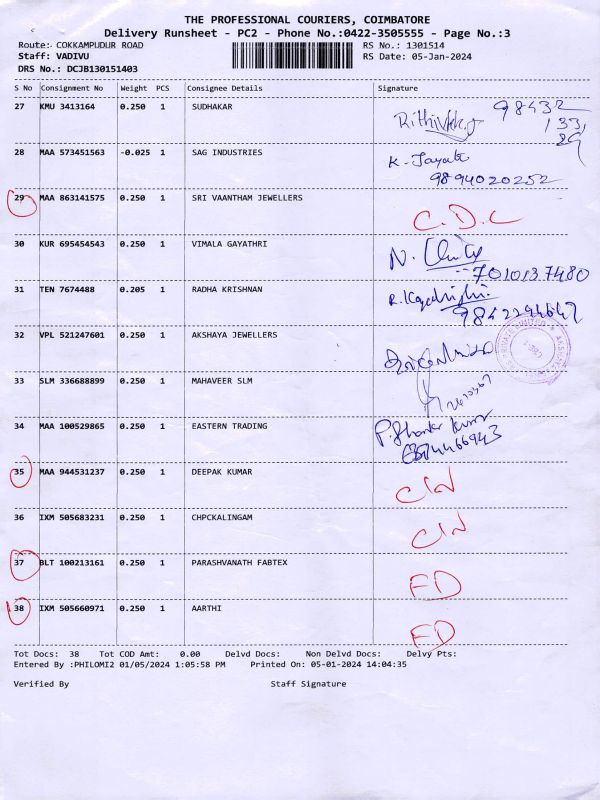 THE PROFESSIONAL COURIERS, COIMBATORE
Delivery Runsheet - PC2 - Phone No.:0422-3505555 - Page No.:3
Route: COKKAMPUDUR ROAD RS No.: 1301514
Staff: VADIVU RS Date: 05-Jan-2024
DRS No.: DCJB130151403
S No Consignment No Weight PCS Consignee Details Signature
27 KMU 3413164 0.250 1 SUDHAKAR 98432
28 MAA 573451563 -0.025 1 SAG INDUSTRIES K. 9894020252
29 MAA 863141575 0.250 1 SRI VAANTHAM JEWELLERS C.D.L
30 KUR 695454543 0.250 1 VIMALA GAYATHRI N. 7010137480
31 TEN 7674488 0.205 1 RADHA KRISHNAN R.
32 VPL 521247601 0.250 1 AKSHAYA JEWELLERS
33 SLM 336688899 0.250 1 MAHAVEER SLM
34 MAA 100529865 0.250 1 EASTERN TRADING
35 MAA 944531237 0.250 1 DEEPAK KUMAR
36 IXM 505683231 0.250 1 CHPCKALINGAM
37 BLT 100213161 0.250 1 PARASHVANATH FABTEX FD
38 IXM 505660971 0.250 1 AARTHI FD
Tot Docs: 38 Tot COD Amt: 0.00 Delvd Docs: Non Delvd Docs: Delvy Pts:
Entered By :PHILOMI2 01/05/2024 1:05:58 PM Printed On: 05-01-2024 14:04:35
Verified By Staff Signature